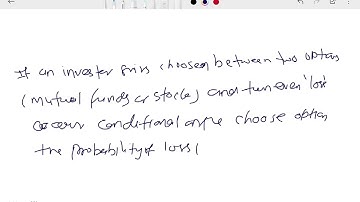 If an invester firm choosen between two option
(mutual funds or stocks) and turn even 'loss
occurs conditional on choose option
the probability of loss (